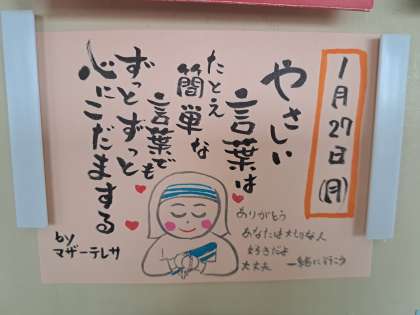 1月27日(月)
やさしい
言葉は
たとえ
簡単な
言葉でも
ずっとずっと
心にこだまする
by
マザーテレサ
ありがとう
あなたは大切な人
好きだよ
大丈夫 一緒に行こう